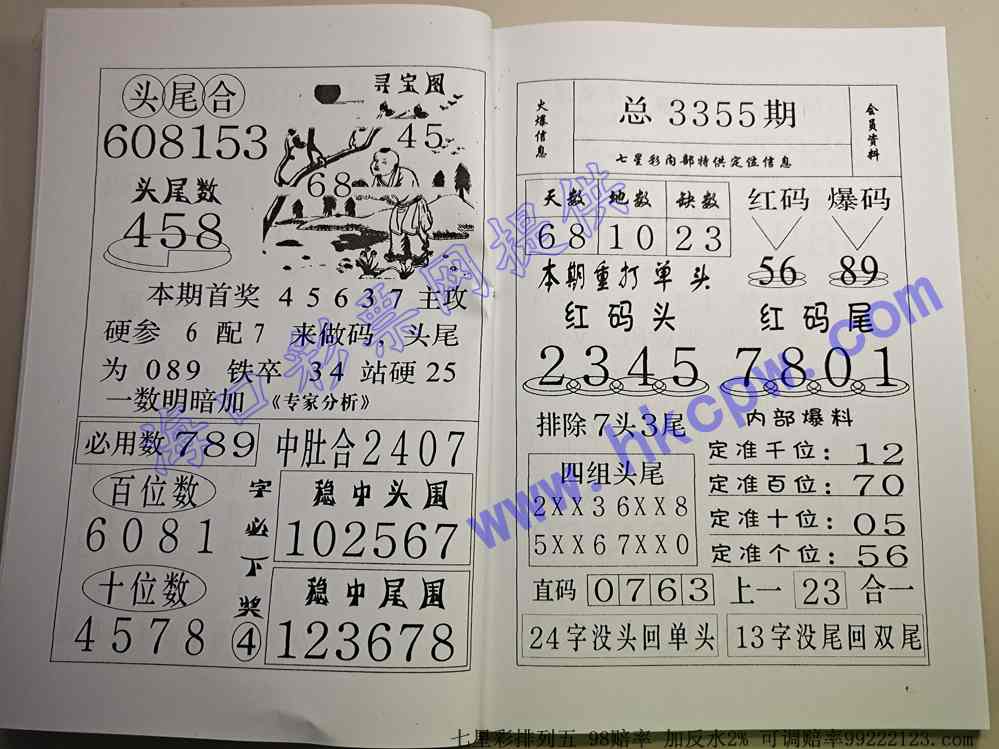 头尾合
608153
寻宝图
45
68
头尾数
458
本期首奖 45637主攻
硬参 6 配7 来做码，头尾
为 089 铁卒 34 站硬25
一数明暗加 《专家分析》
必用数789
中肚合2407
百位数
6081
十位数
4578
字必下奖④
稳中头围
102567
稳中尾围
123678
火爆信息
总3355期
七星彩内部特供定位信息
会员资料
天数 地数 缺数
68 10 23
红码 爆码
56 89
本期重打单头
红码头 红码尾
2345 7801
排除7头3尾
四组头尾
2XX3 6XX8
5XX6 7XX0
内部爆料
定准千位：12
定准百位：70
定准十位：05
定准个位：56
直码 0763 上一 23 合一
24字没头回单头
13字没尾回双尾
海口彩票网提供
www.hkcpw.com
七星彩排列五 98赔率 加反水2% 可调赔率99222123.com